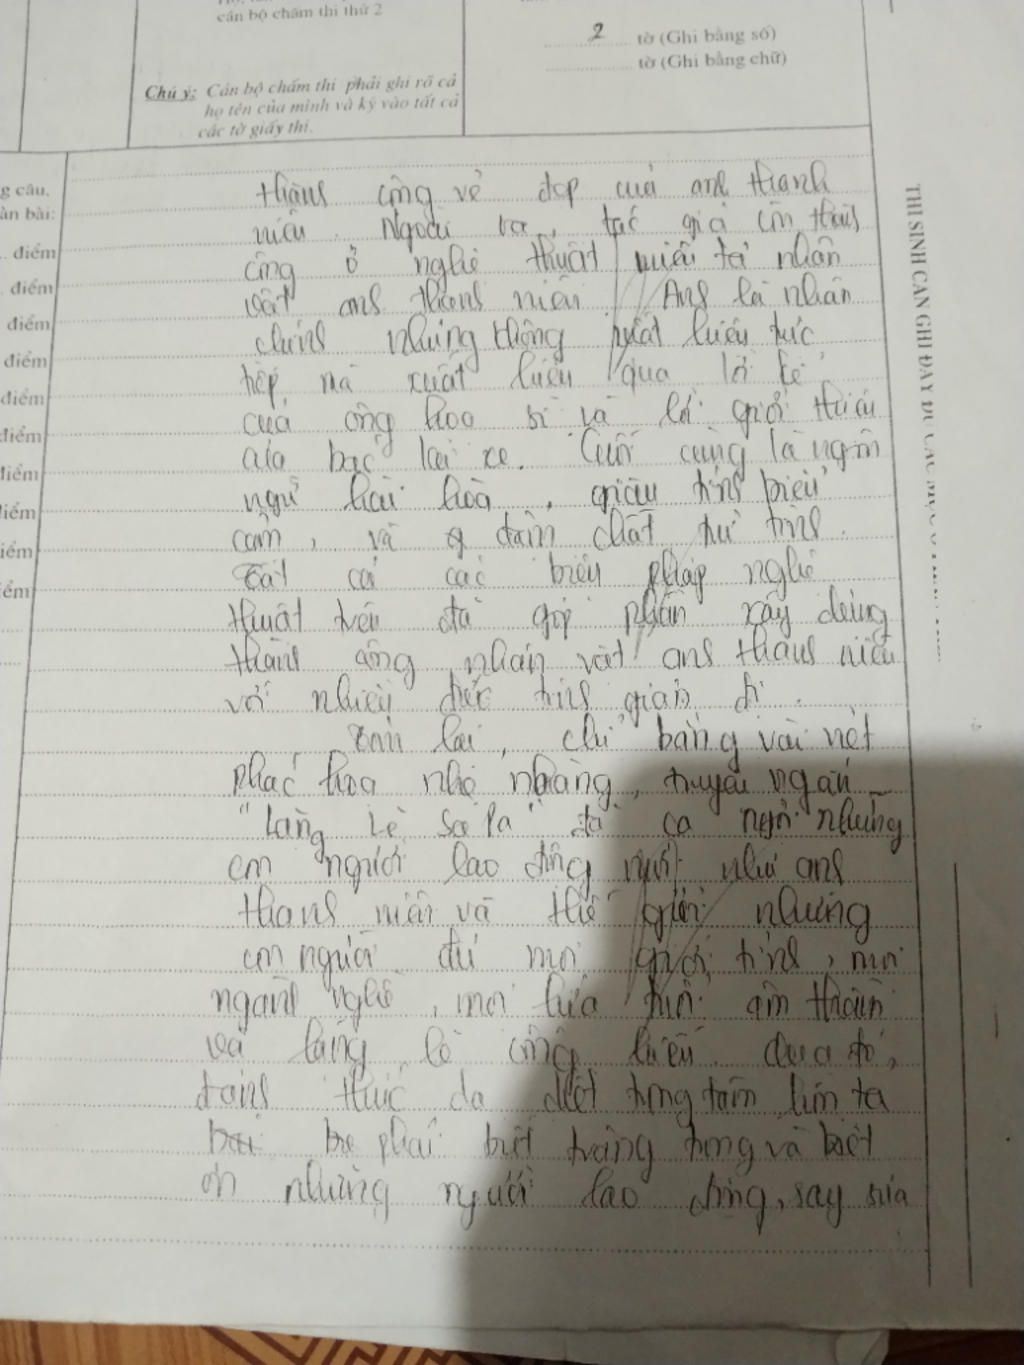 cán bộ chấm thi thứ 2
2 tờ (Ghi bằng số)
tờ (Ghi bằng chữ)
Chú ý: Cán bộ chấm thi phải ghi rõ cả
họ tên của mình và ký vào tất cả
các tờ giấy thi.
g câu.
àn bài:
điểm
điểm
điểm
điểm
điểm
điểm
điểm
iểm
iểm
ểm
THÍ SINH CẦN GHI ĐẦY ĐỦ CÁC MỤC Ở PHẦN TRÊN
thành công vẻ đẹp của anh thanh
niên. Ngoài ra, tác giả còn thành
công ở nghệ thuật miêu tả nhân
vật anh thanh niên. Anh là nhân
chính nhưng không xuất hiện trực
tiếp mà xuất hiện qua lời kể
của ông hoạ sĩ và lời giới thiệu
của bác lái xe. Cuối cùng là ngôn
ngữ hài hoà, giàu tính biểu
cảm, và đậm chất trữ tình.
Tất cả các biện pháp nghệ
thuật trên đã góp phần xây dựng
thành công nhân vật anh thanh niên
với nhiều đức tính giản dị.
Tóm lại, chỉ bằng vài nét
phác hoạ nhẹ nhàng, truyện ngắn
"Lặng lẽ Sa Pa" đã ca ngợi những
con người lao động mới như anh
thanh niên và thế giới những
con người đủ mọi giới tính, mọi
ngành nghề, mọi lứa tuổi âm thầm
và lặng lẽ cống hiến. Qua đó,
đánh thức da diết trong tâm hồn ta
ta phải biết trân trọng và biết
ơn những người lao động, say sưa